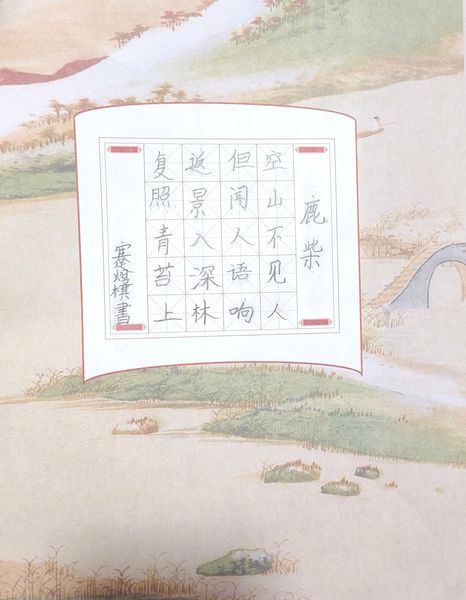 鹿柴
空山不见人
但闻人语响
返景入深林
复照青苔上
书